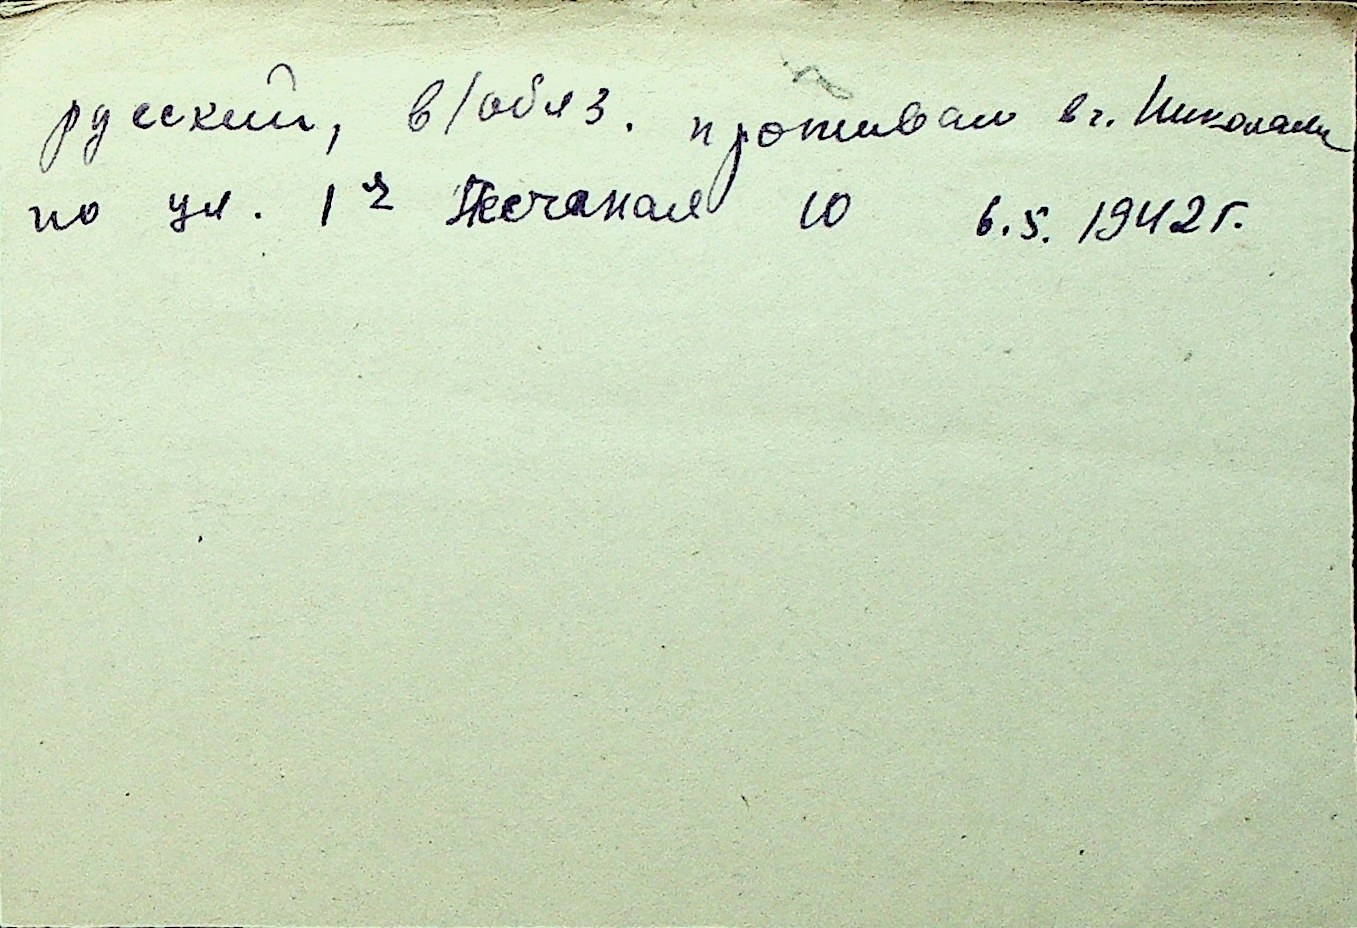 русский, в/обяз. проживал в г. Николаев
по ул. 1я Песчаная 10 6.5. 1942 г.